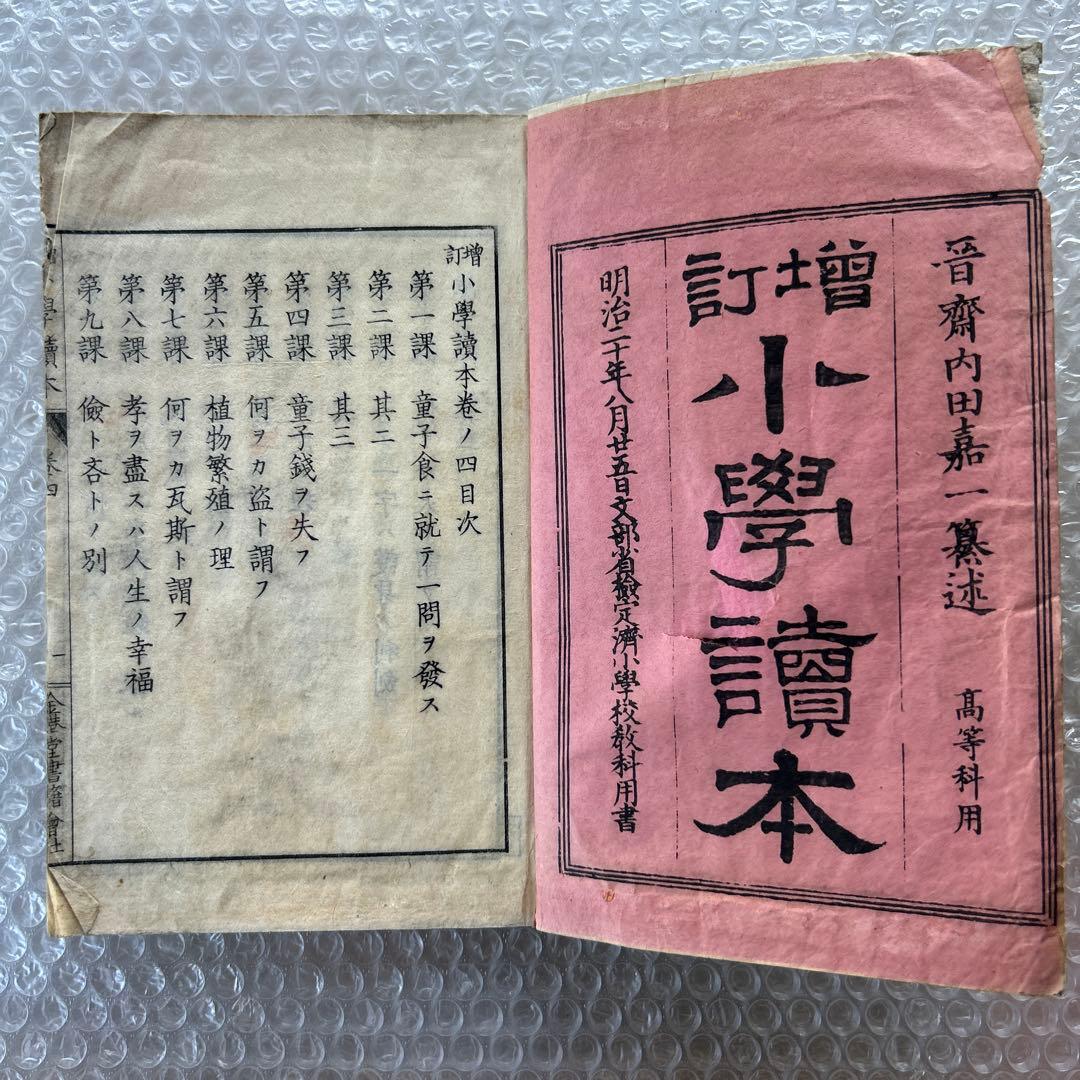 晉齋内田嘉一纂述　高等科用
增訂小學讀本
明治二十年八月廿五日文部省檢定濟小學校敎科用書
增訂小學讀本卷ノ四目次
第一課　童子食ニ就テ一問ヲ發ス
第二課　其二
第三課　其三
第四課　童子錢ヲ失フ
第五課　何ヲカ盜ト謂フ
第六課　植物繁殖ノ理
第七課　何ヲカ瓦斯ト謂フ
第八課　孝ヲ盡スハ人生ノ幸福
第九課　儉ト吝トノ別
小學讀本　卷四　一　金港堂書籍會社